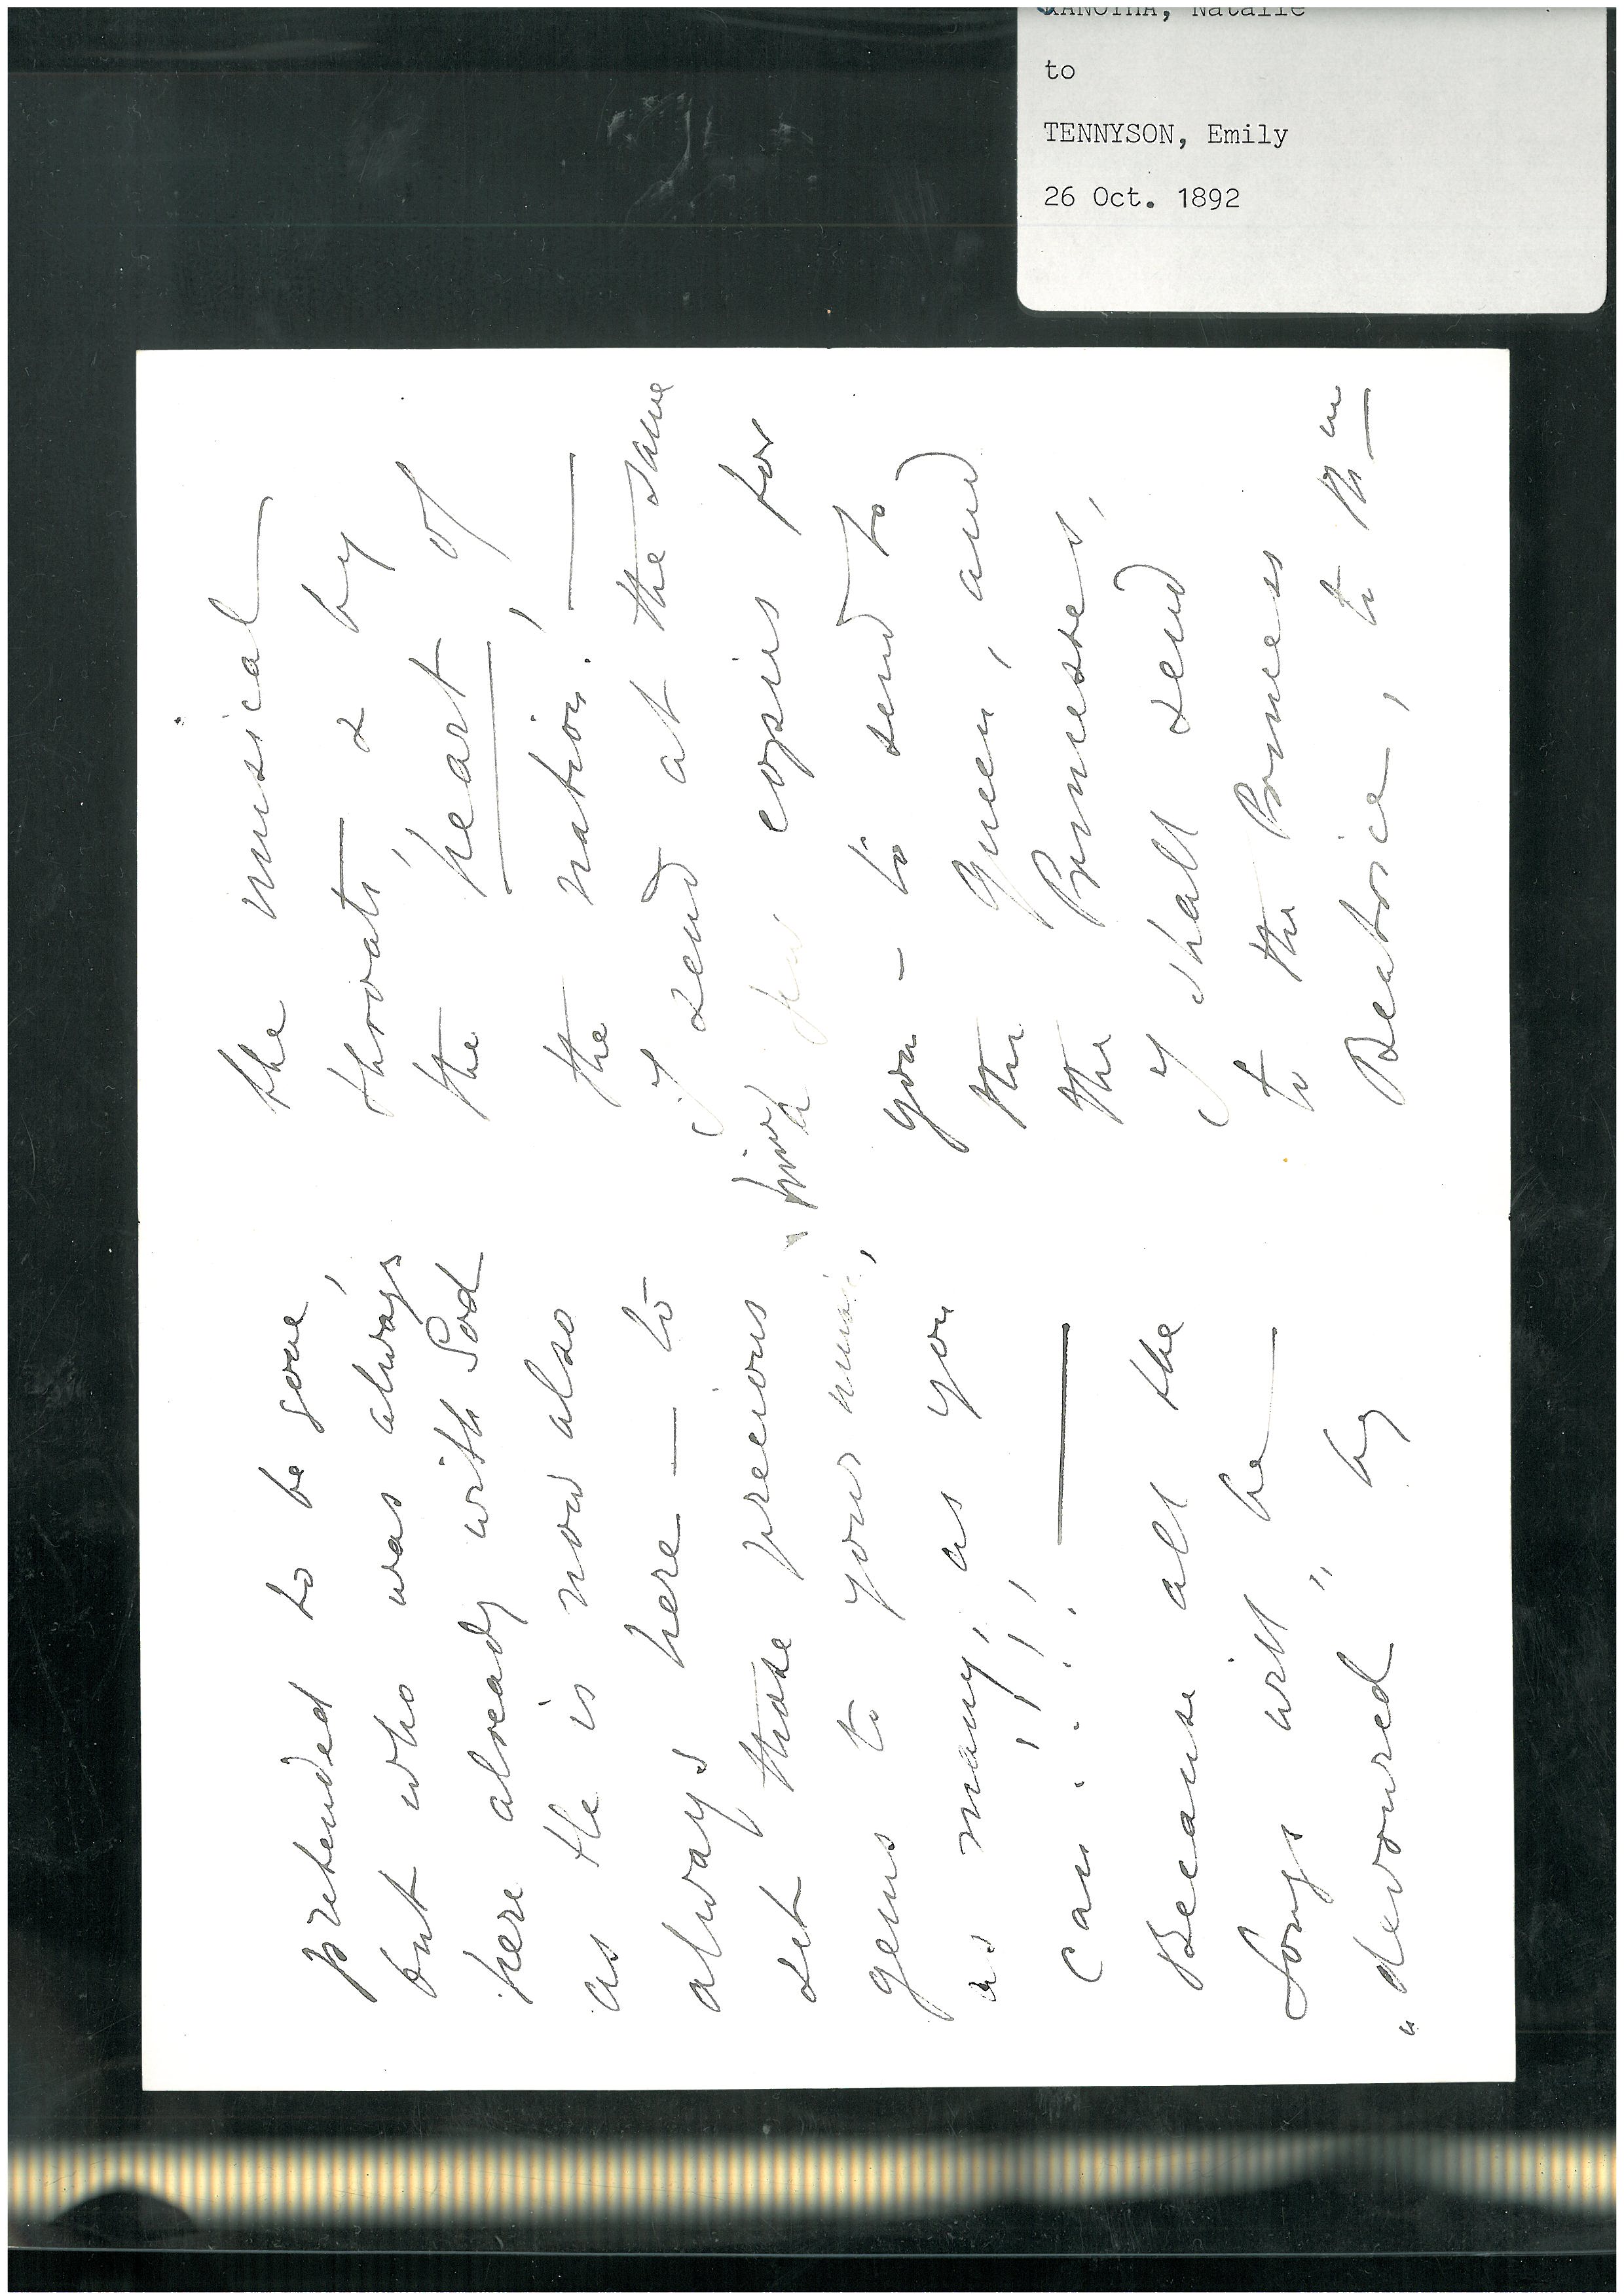 JANOTHA, Natalie
to
TENNYSON, Emily
26 Oct. 1892
pretended to be gone,
but who was always
here already with God
as He is now also
always here — to
set those precious
gems to your music,
as many, as you
can!!!! —
Because all the
Songs will be
"devoured" by
the musical
throats, & by
the heart of
the nation. —
I send at the same
time a few copies for
you – to send to
the Queen, and
the Princesses,
I shall send
to the Princess
Beatrice, to th